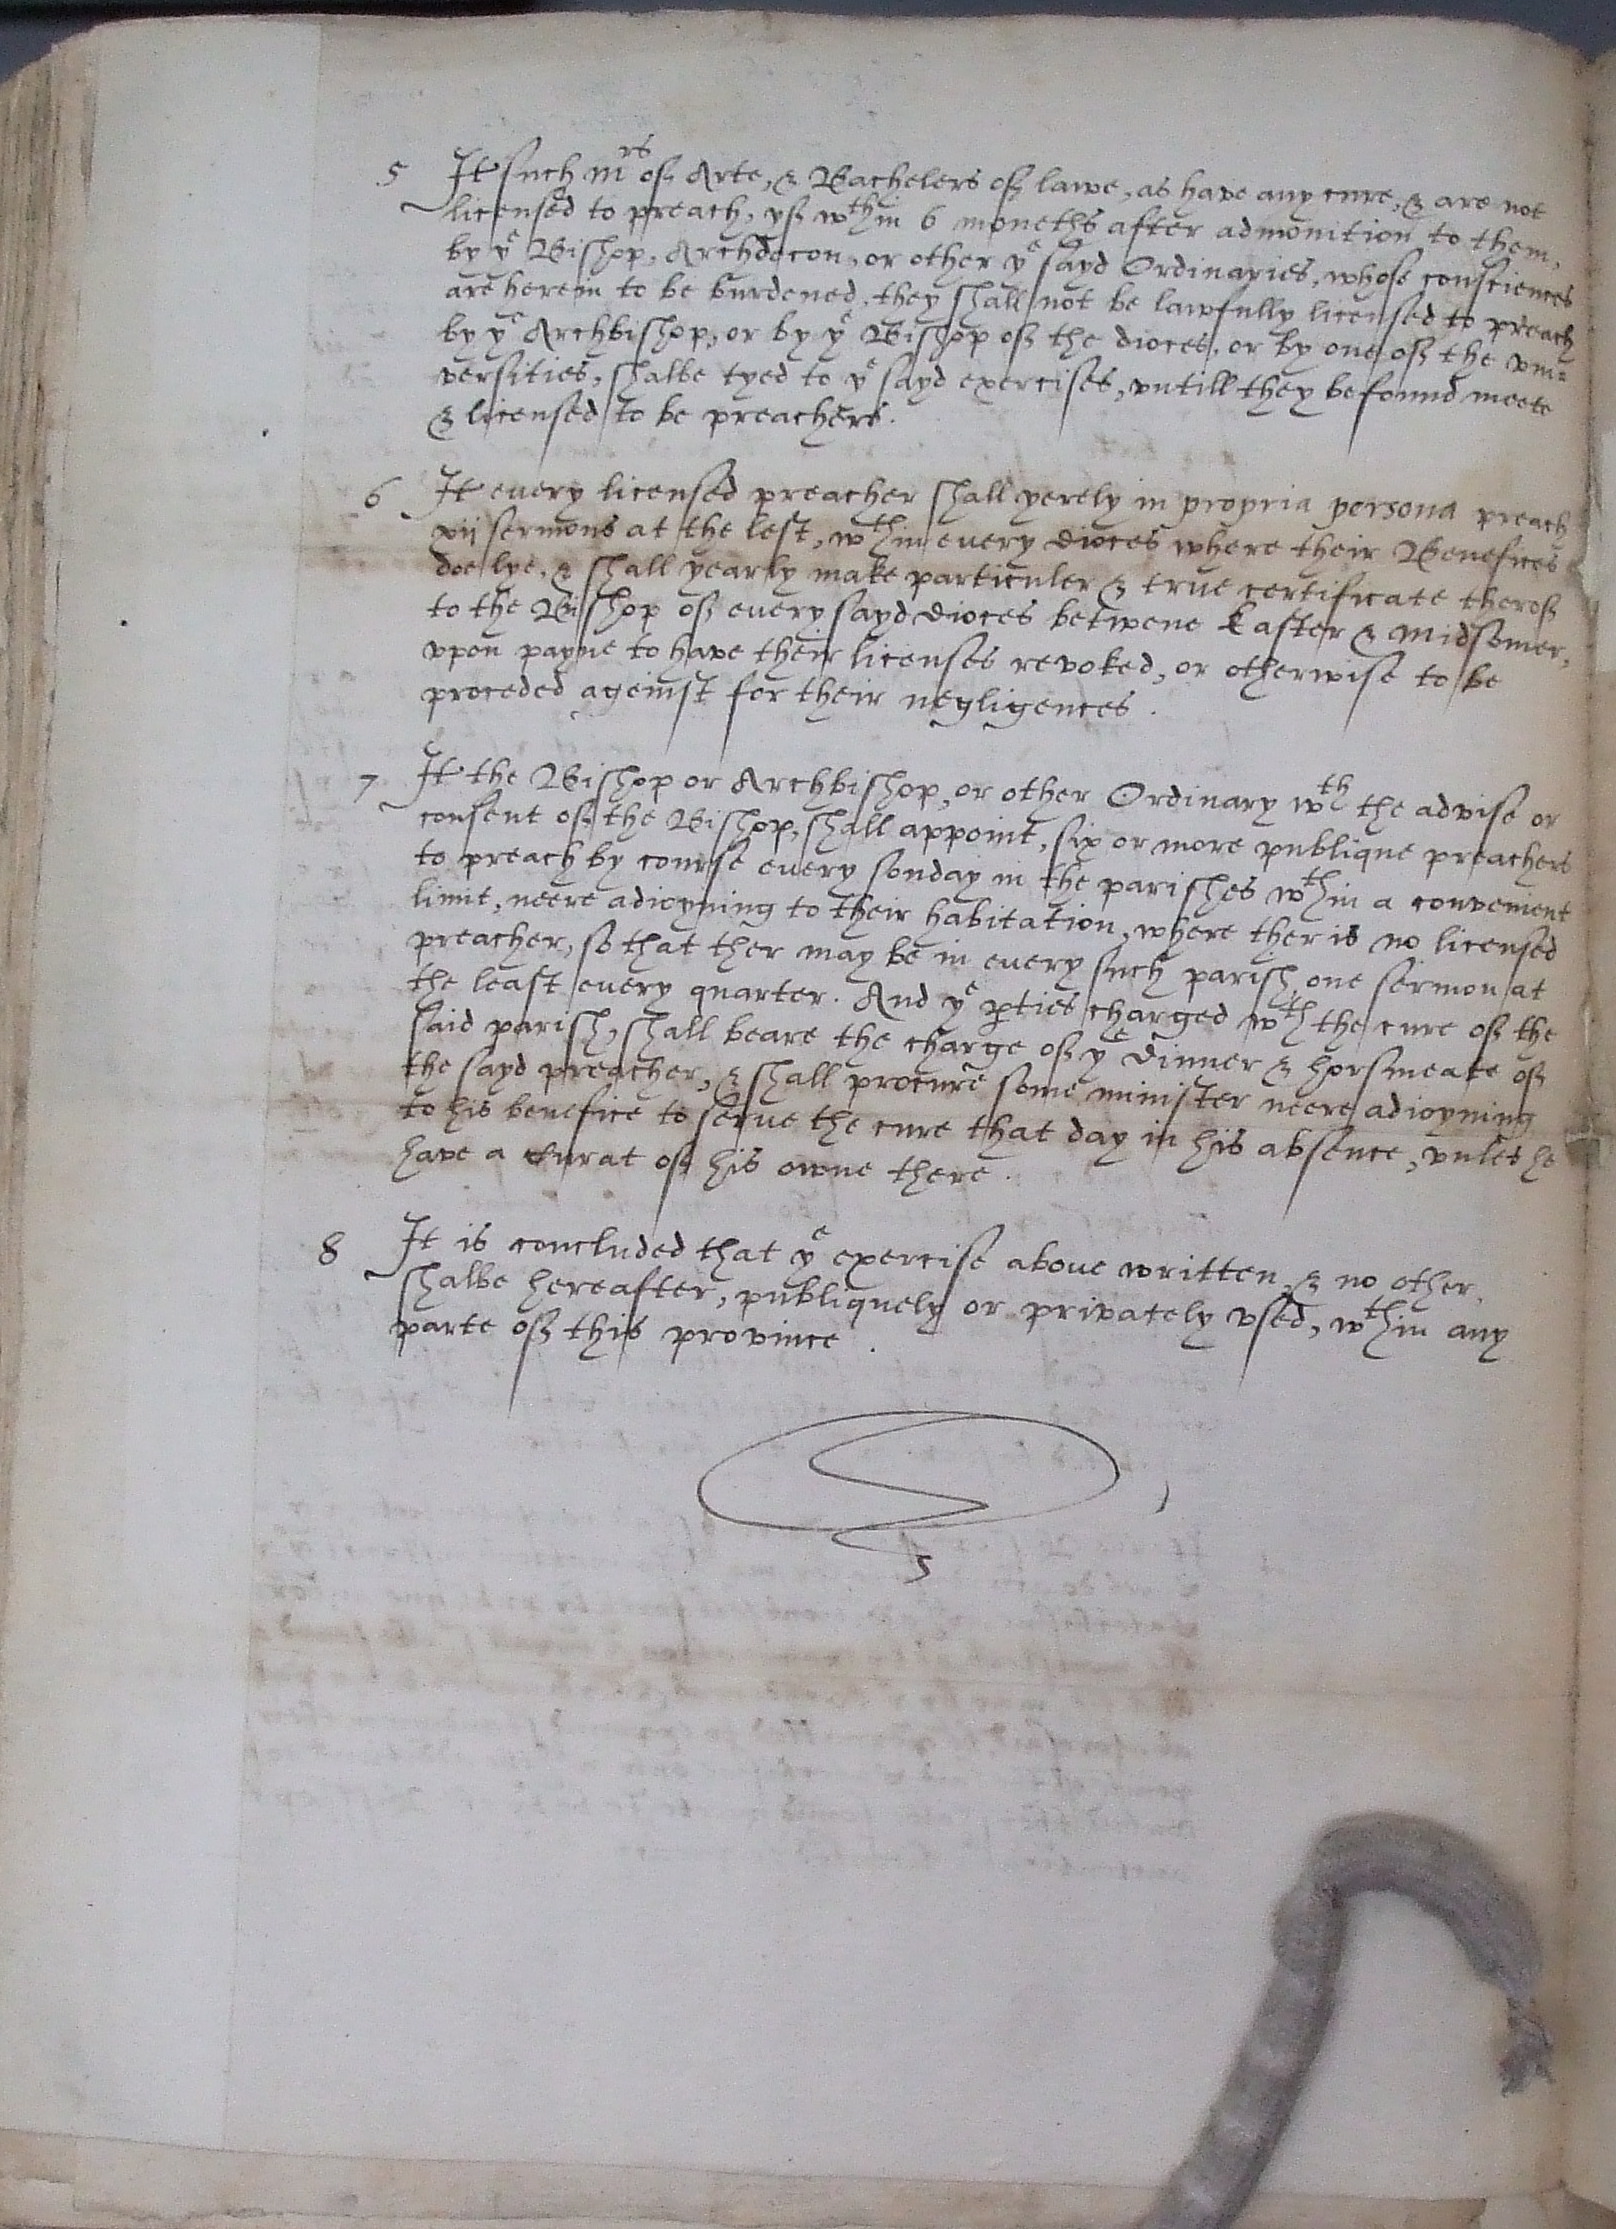 5 It such Mrs of Arte, & Bachelers of lawe, as have any cure, & are not
licensed to preach, yf wthin 6 moneths after admonition to them,
by ye Bishop, Archdecon, or other ye sayd Ordinaries, whose consciences
are herein to be burdened, they shall not be lawfully licensed to preach
by ye Archbishop, or by ye Bishop of the dioces, or by one of the vni=
versities, shalbe tyed to ye sayd exercises, vntill they be found meete
& licensed to be preachers.
6 It euery licensed preacher shall yerely in propria persona preach
xij sermons at the lest, wthin euery dioces where their Benefices
doe lye, & shall yearly make particuler & true certificate therof
to the Bishop of euery sayd dioces betwene Easter & Midsomer,
vpon payne to have their licenses revoked, or otherwise to be
proceded ageinst for their negligences.
7 It the Bishop or Archbishop, or other Ordinary wth the advise or
consent of the Bishop, shall appoint, six or more publique preachers
to preach by course euery sonday in the parishes wthin a convenient
limit, neere adioyning to their habitation, where ther is no licensed
preacher, so that ther may be in euery such parish one sermon at
the least euery quarter. And ye pties charged wth the cure of the
said parish, shall beare the charge of ye dinner & horsmeate of
the sayd preacher, & shall procure some minister neere adioyning
to his benefice to serue the cure that day in his absence, vnles he
have a Curat of his owne there.
8 It is concluded that ye exercise aboue written & no other,
shalbe hereafter, publiquely or privately vsed, wthin any
parte of this province.